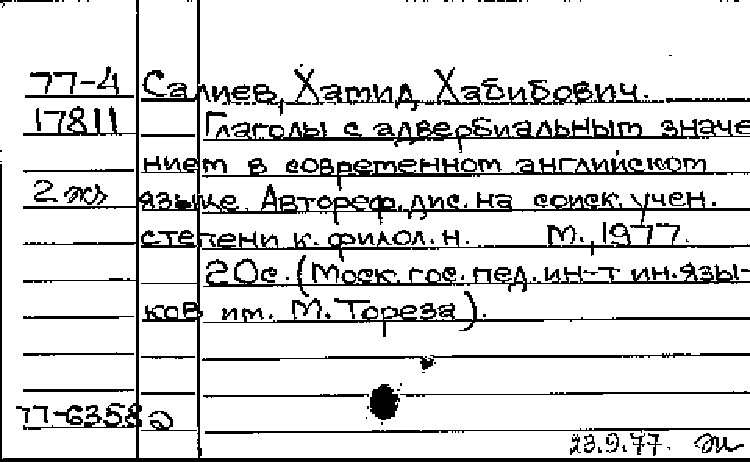 77-4 Салиев, Хамид Хабибович.
17811 Глаголы с адвербиальным значе
нием в современном английском
2 экз языке. Автореф. дис. на соиск. учен.
степени к. филол. н. М., 1977.
20с. (Моск. гос. пед. ин-т ин. язы-
ков им. М. Тореза).
77-6358
23.9.77.